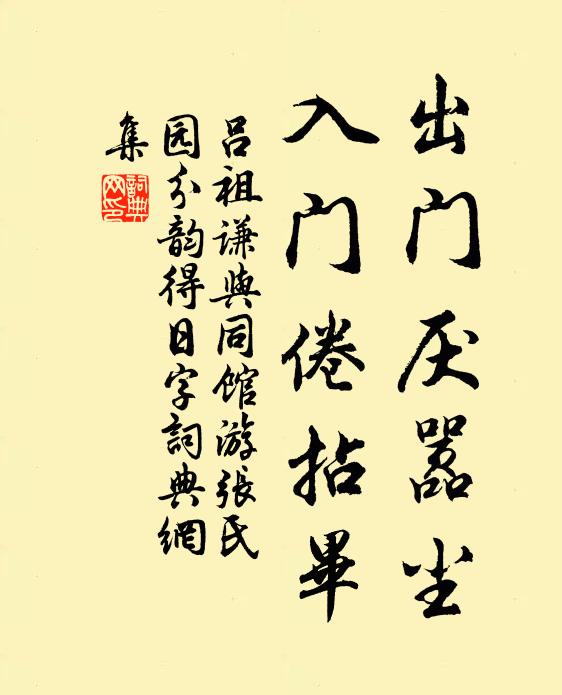 出门厌嚣尘
入门倦拈畢
吕祖谦與同馆游張氏
园分韵得日字詞典網
集
詞典
网印